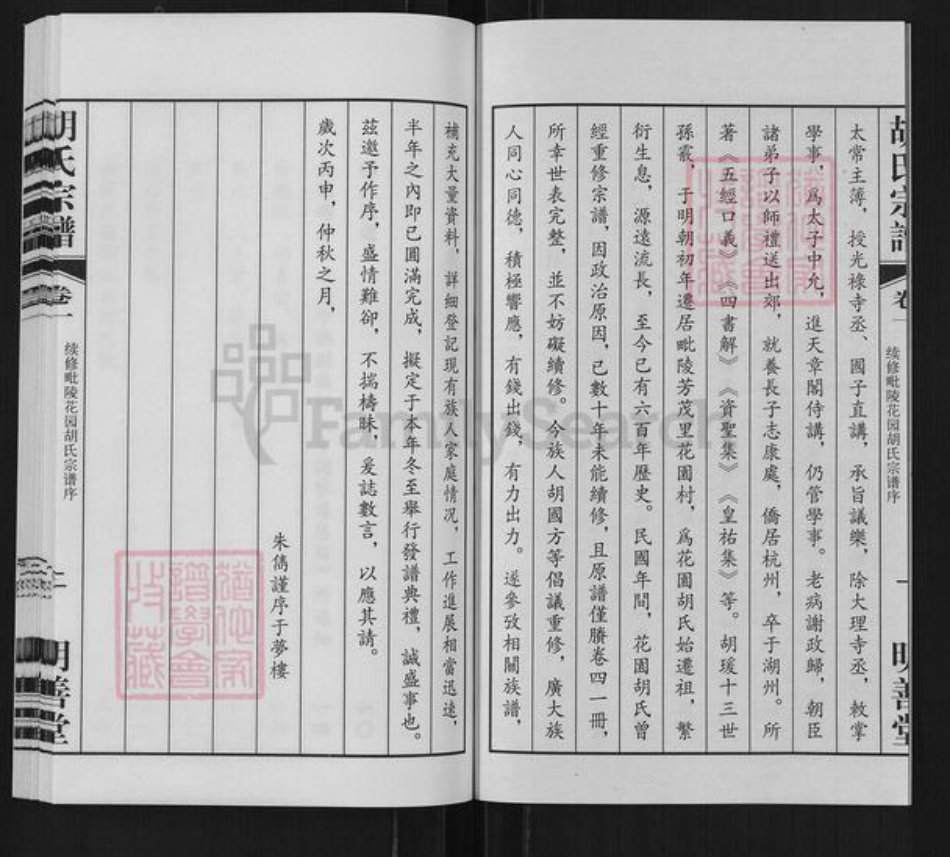 胡氏宗譜
卷一
续修毗陵花园胡氏宗谱序
一
明善堂
太常主簿，授光祿寺丞、國子直講，承旨議樂，除大理寺丞，敕掌
學事，爲太子中允，進天章閣侍講，仍管學事。老病謝政歸，朝臣
諸弟子以師禮送出郊，就養長子志康處，僑居杭州，卒于湖州。所
著《五經口義》《四書解》《資聖集》《皇祐集》等。胡瑗十三世
孫霞，于明朝初年遷居毗陵芳茂里花園村，爲花園胡氏始遷祖，繁
衍生息，源遠流長，至今已有六百年歷史。民國年間，花園胡氏曾
經重修宗譜，因政治原因，已數十年未能續修，且原譜僅賸卷四一冊，
所幸世表完整，並不妨礙續修。今族人胡國方等倡議重修，廣大族
人同心同德，積極響應，有錢出錢，有力出力。遂參攷相關族譜，
補充大量資料，詳細登記現有族人家庭情況，工作進展相當迅速，
半年之內即已圓滿完成，擬定于本年冬至舉行發譜典禮，誠盛事也。
茲邀予作序，盛情難卻，不揣檮昧，爰誌數言，以應其請。
歲次丙申，仲秋之月，
朱雋謹序于夢樓
胡氏宗譜
卷一
续修毗陵花园胡氏宗谱序
二
明善堂
FamilySearch